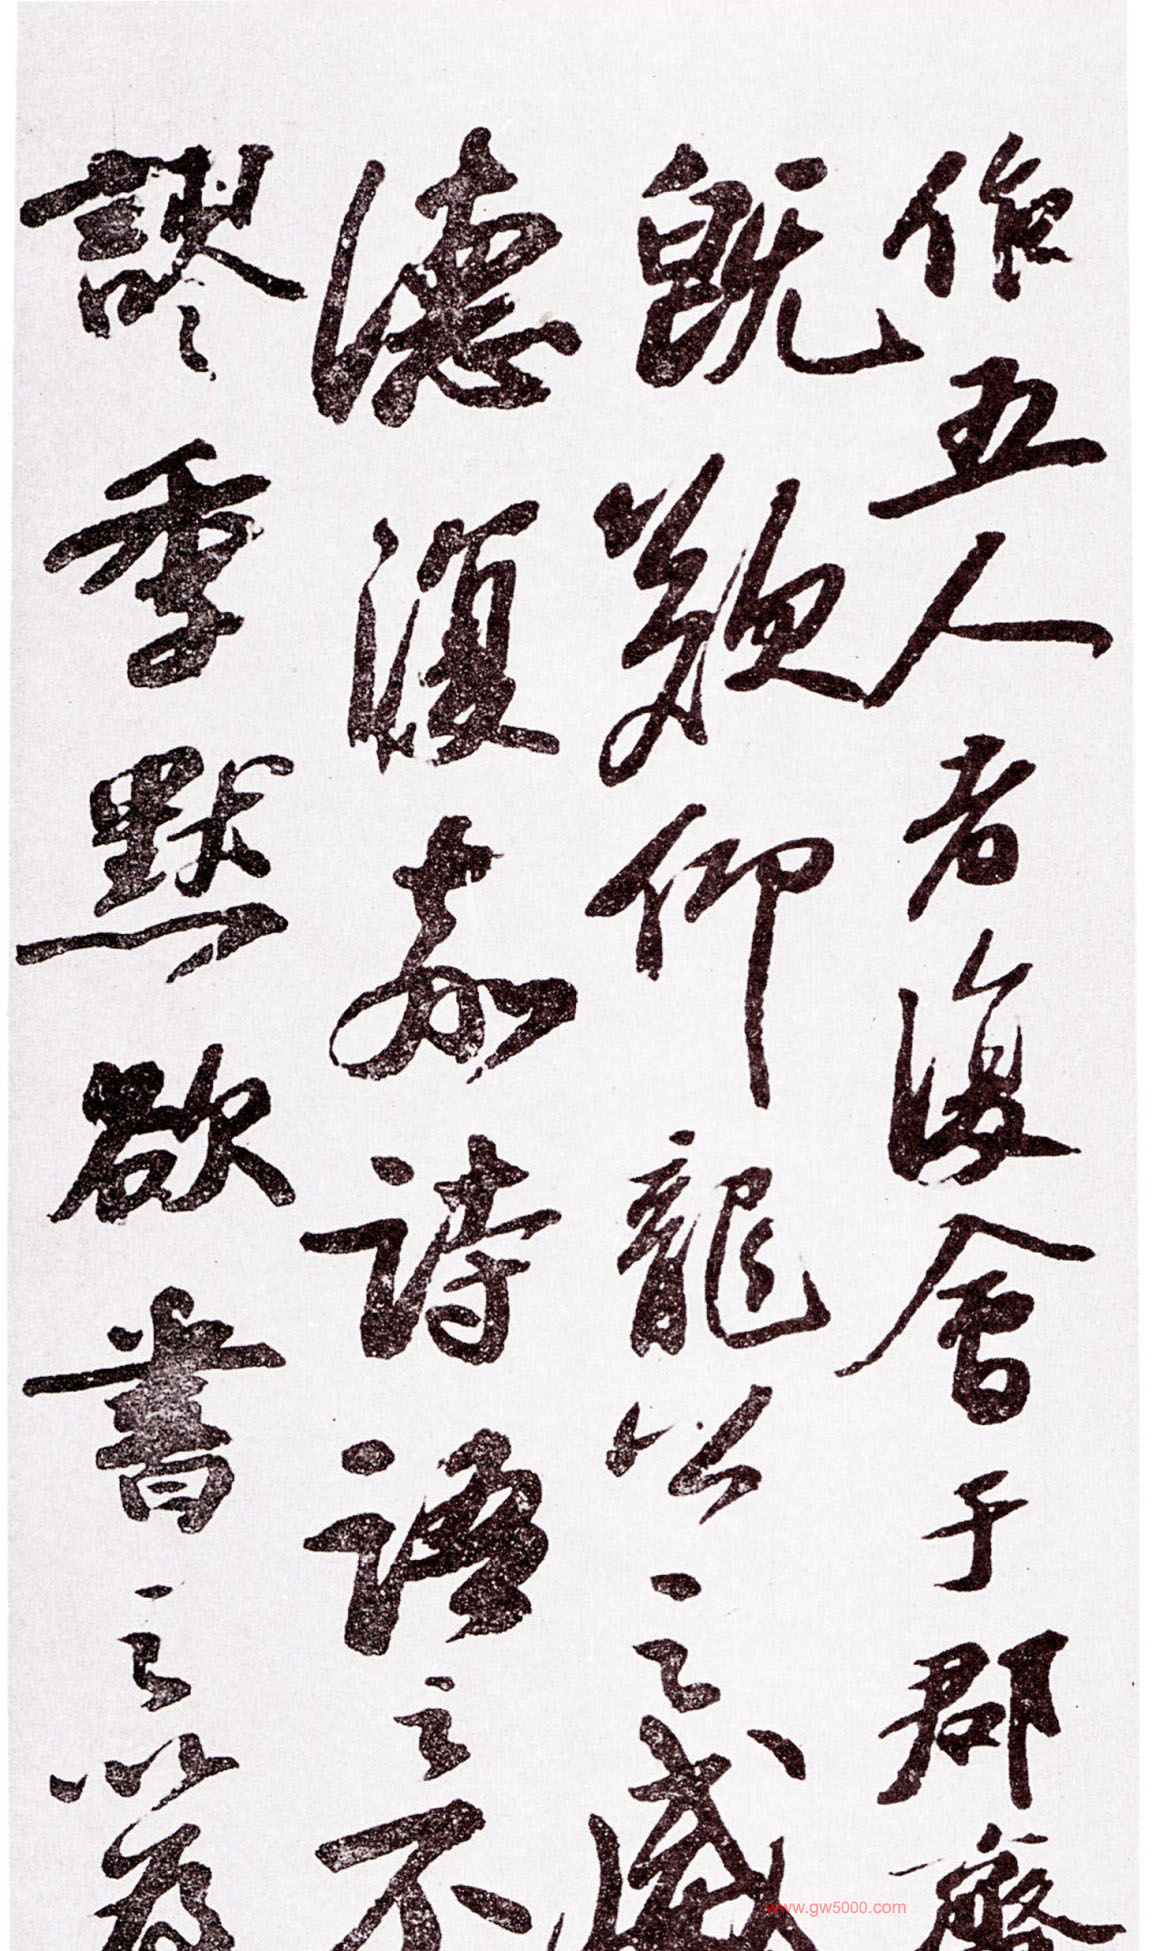 作五人者復會于郡齋
既歎仰龍公之威
德復嘉詩語之不
謬季默欲書之以為
www.gw5000.com